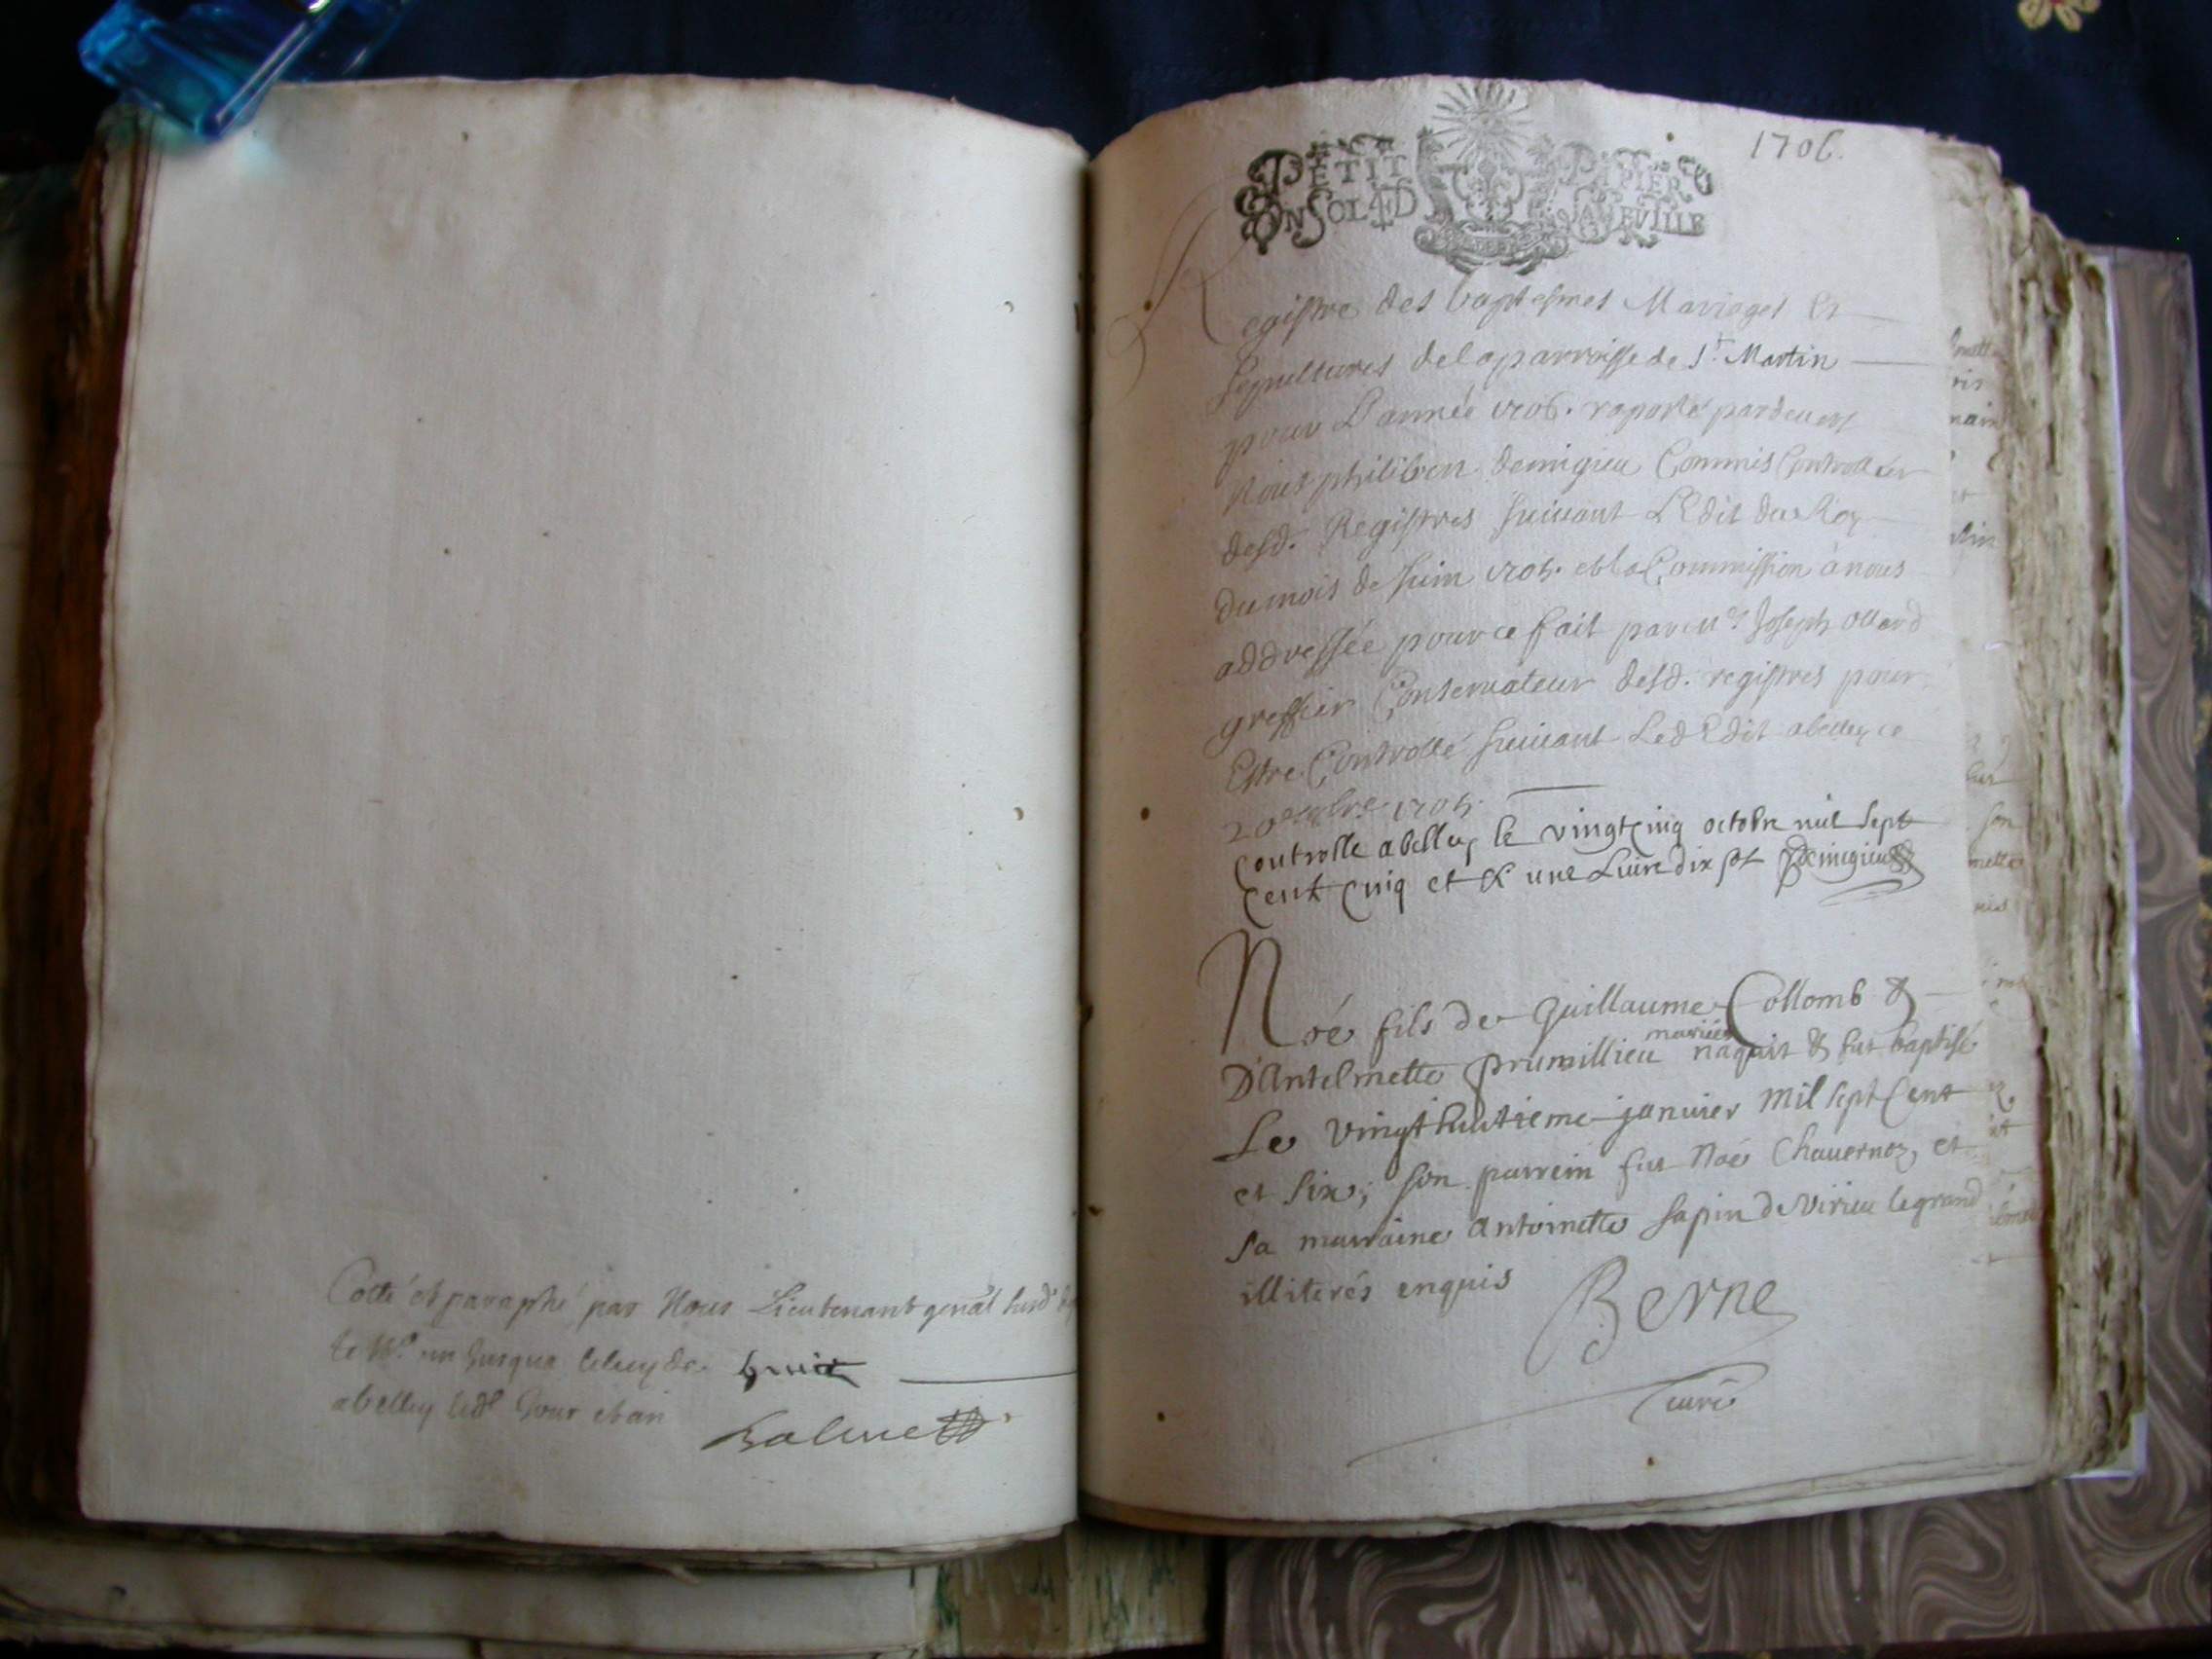 Cotté et paraphé par Nous Lieutenant genāl susd
le No un Jusqua celuy de huit
abelley led Jour et an
Balme
1706.
PETIT PAPIER
UN SOL 4 D LA FEUILLE
Registre des baptesmes Mariages Et
Sepultures de la parroisse de St Martin
pour L'année 1706. raporté pardevant
Nous philibert demigieu Commis Controlleur
desd. Registres suivant L'Edit du Roy
du mois de Juin 1705. et la Commission à nous
addressée pour ce fait par Me Joseph ollard
greffier Conservateur desd. registres pour
Estre Controllé suivant Led Edit abelley ce
octobre 1705.
Controllé abelley le vingtcinq octobre mil sept
Cent Cinq et R une Livre dix st Demigieu
Noé fils de Guillaume Collomb &
D'Antelmette prumillieu mariés naquit & fut baptisé
Le vingthuitieme janvier mil sept Cent
et six; son parrein fut Noé Chavernoz, et
sa marraine Antoinette sapin de Virieu legrand
illiterés enquis
Berne
Curé